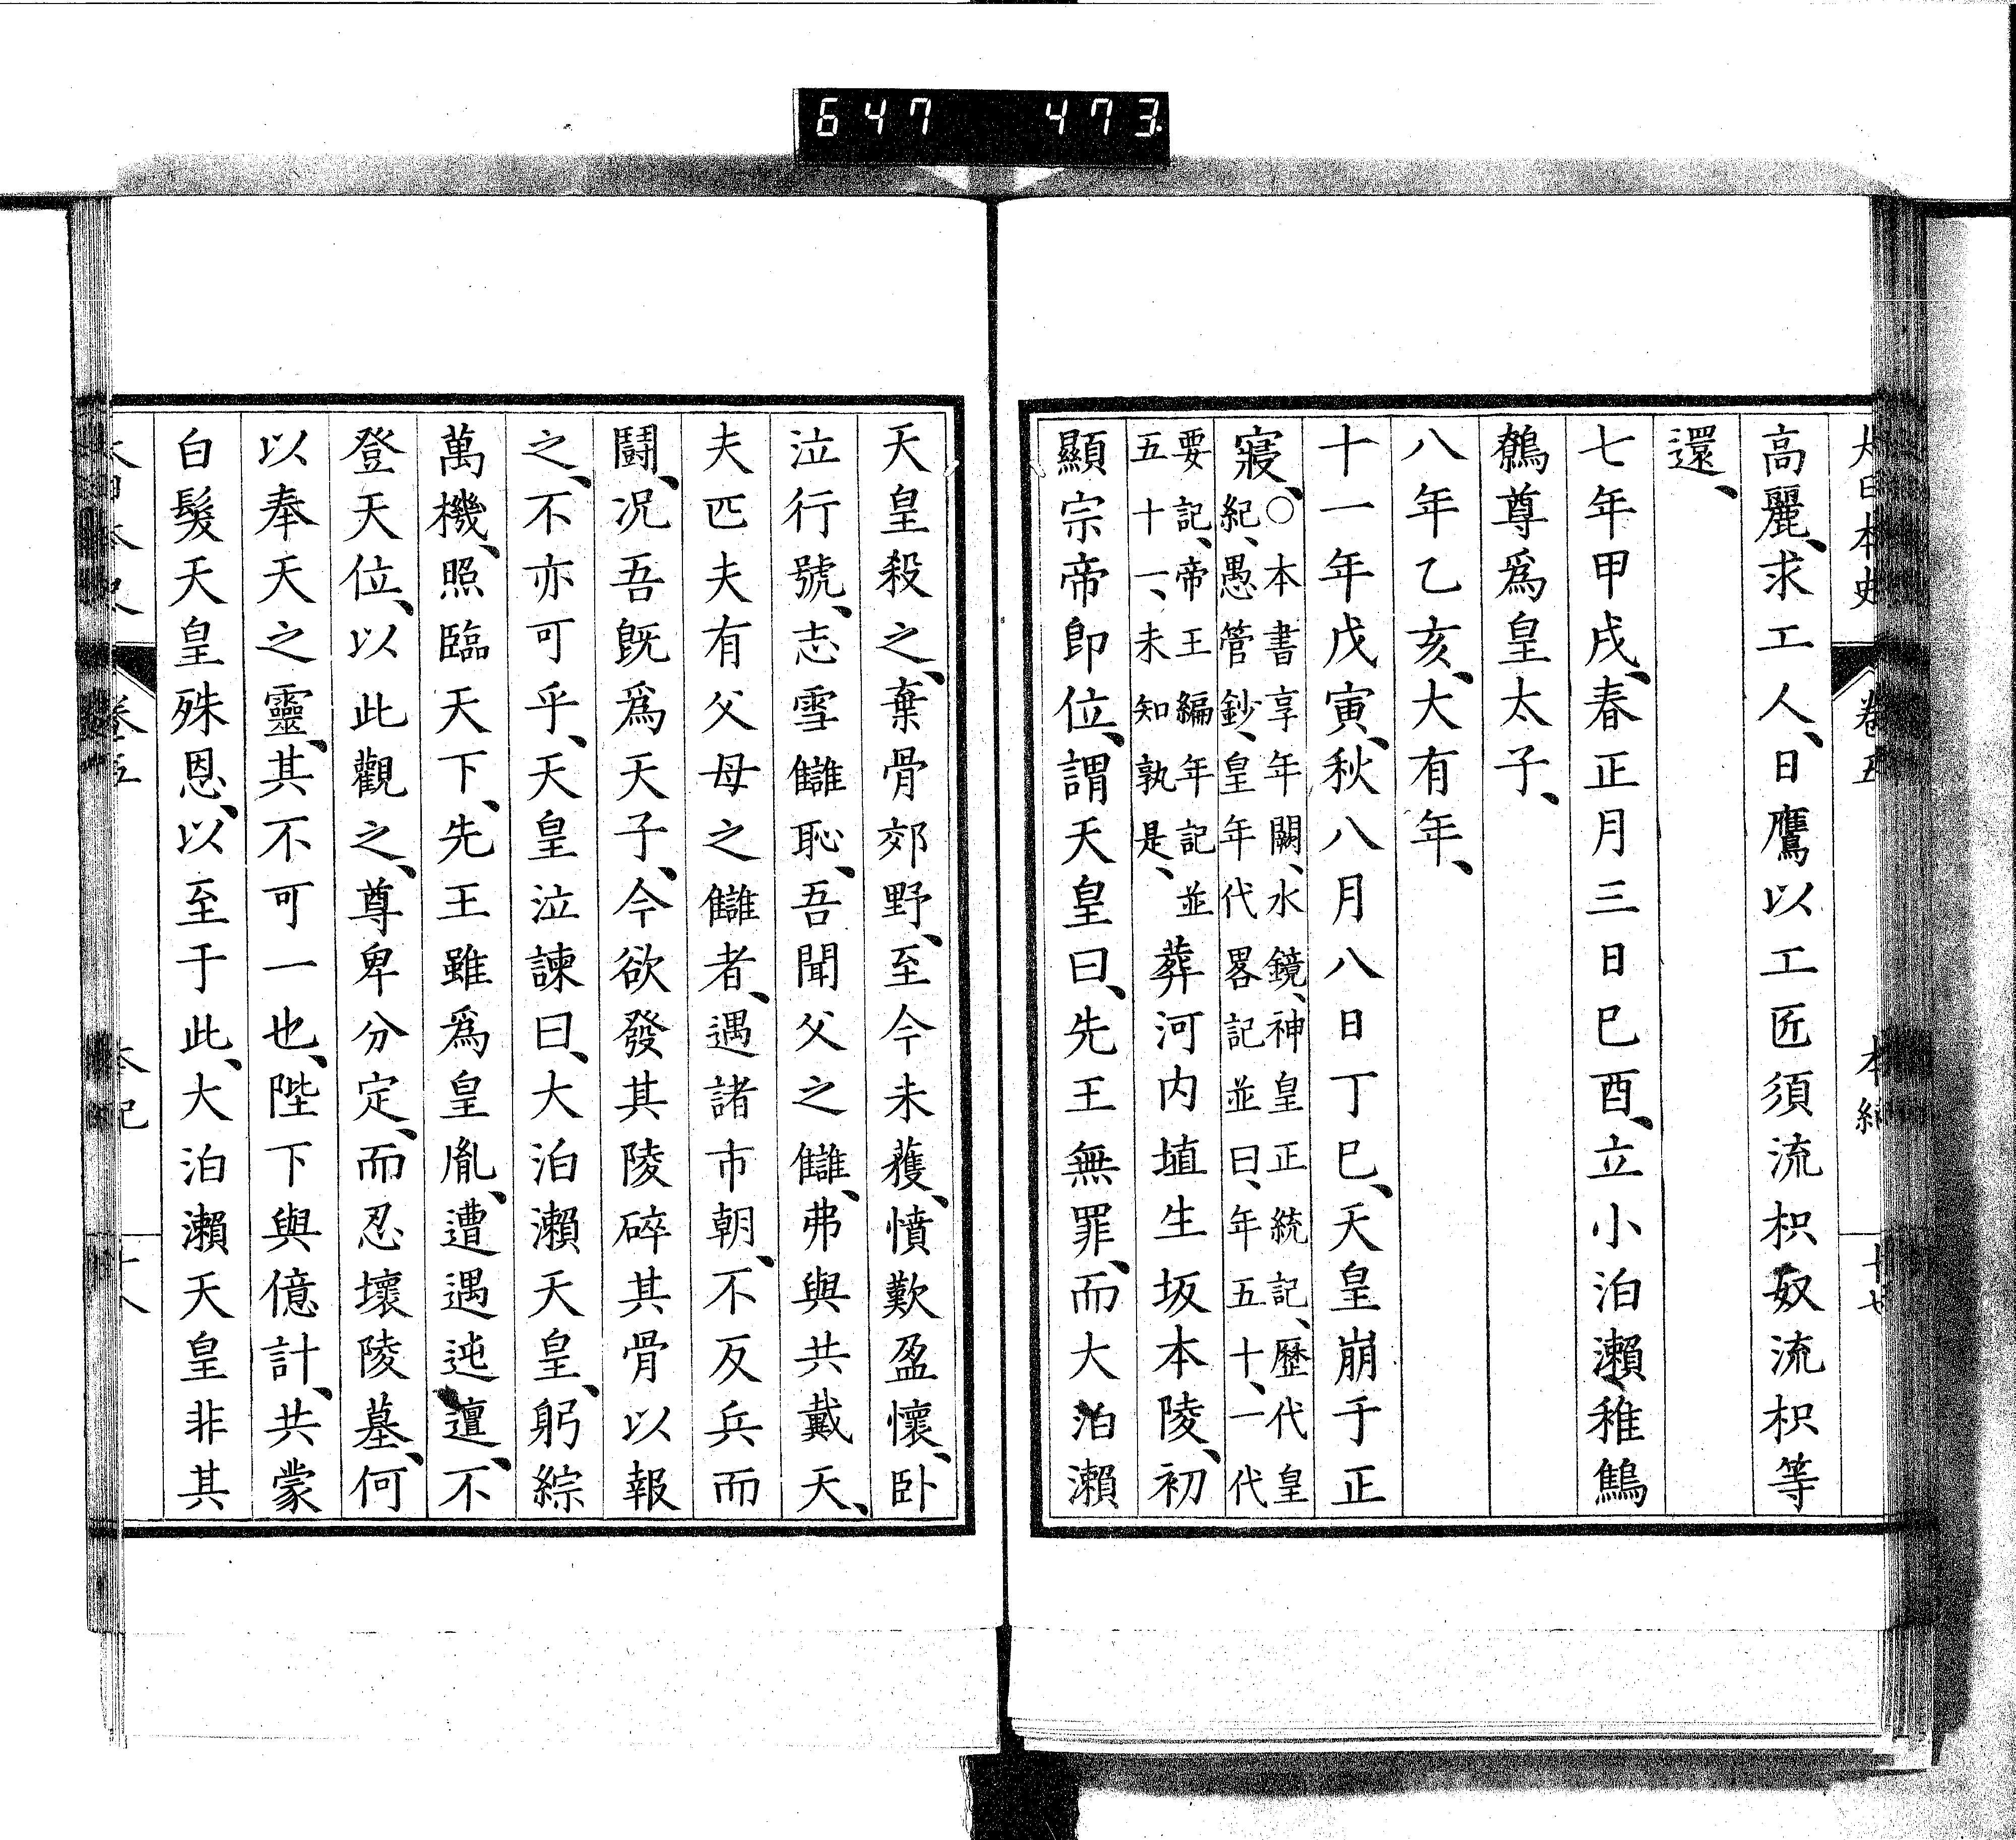 647 473
大日本史 卷五 本紀 十七
高麗、求工人、日鷹以工匠須流枳奴流枳等
還、
七年甲戌、春正月三日巳酉、立小泊瀨稚鷦
鷯尊爲皇太子、
八年乙亥、大有年、
十一年戊寅、秋八月八日丁巳、天皇崩于正
寢、○本書享年闕、水鏡、神皇正統記、歷代皇
紀、愚管鈔、皇年代畧記並曰、年五十、一代
要記、帝王編年記並
五十一、未知孰是、
葬河内埴生坂本陵、初
顯宗帝卽位、謂天皇曰、先王無罪、而大泊瀨
天皇殺之、棄骨郊野、至今未蒦、憤歎盈懷、卧
泣行號、志雪讎恥、吾聞父之讎、弗與共戴天、
夫匹夫有父母之讎者、遇諸市朝、不反兵而
鬪、况吾既爲天子、今欲發其陵碎其骨以報
之、不亦可乎、天皇泣諫曰、大泊瀨天皇、躬綜
萬機、照臨天下、先王雖爲皇胤、遭遇迍邅、不
登天位、以此觀之、尊卑分定、而忍壞陵墓、何
以奉天之靈、其不可一也、陛下與億計、共蒙
白髮天皇殊恩、以至于此、大泊瀨天皇非其
大日本史 卷五 本紀 十八